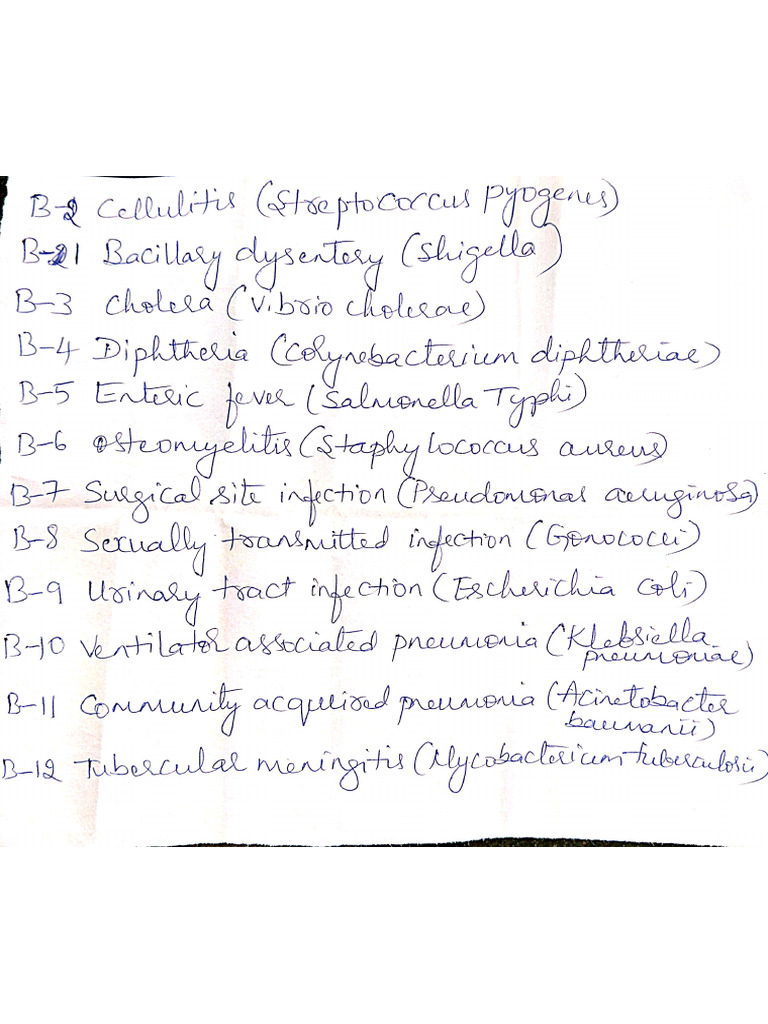 B-2 Cellulitis (Streptococcus pyogenes)
B-1 Bacillary dysentery (Shigella)
B-3 Cholera (Vibrio cholerae)
B-4 Diphtheria (Corynebacterium diphtheriae)
B-5 Enteric fever (Salmonella Typhi)
B-6 Osteomyelitis (Staphylococcus aureus)
B-7 Surgical site infection (Pseudomonas aeruginosa)
B-8 Sexually transmitted infection (Gonococci)
B-9 Urinary tract infection (Escherichia coli)
B-10 Ventilator associated pneumonia (Klebsiella
pneumoniae)
B-11 Community acquired pneumonia (Acinetobacter
baumanii)
B-12 Tubercular meningitis (Mycobacterium tuberculosis)